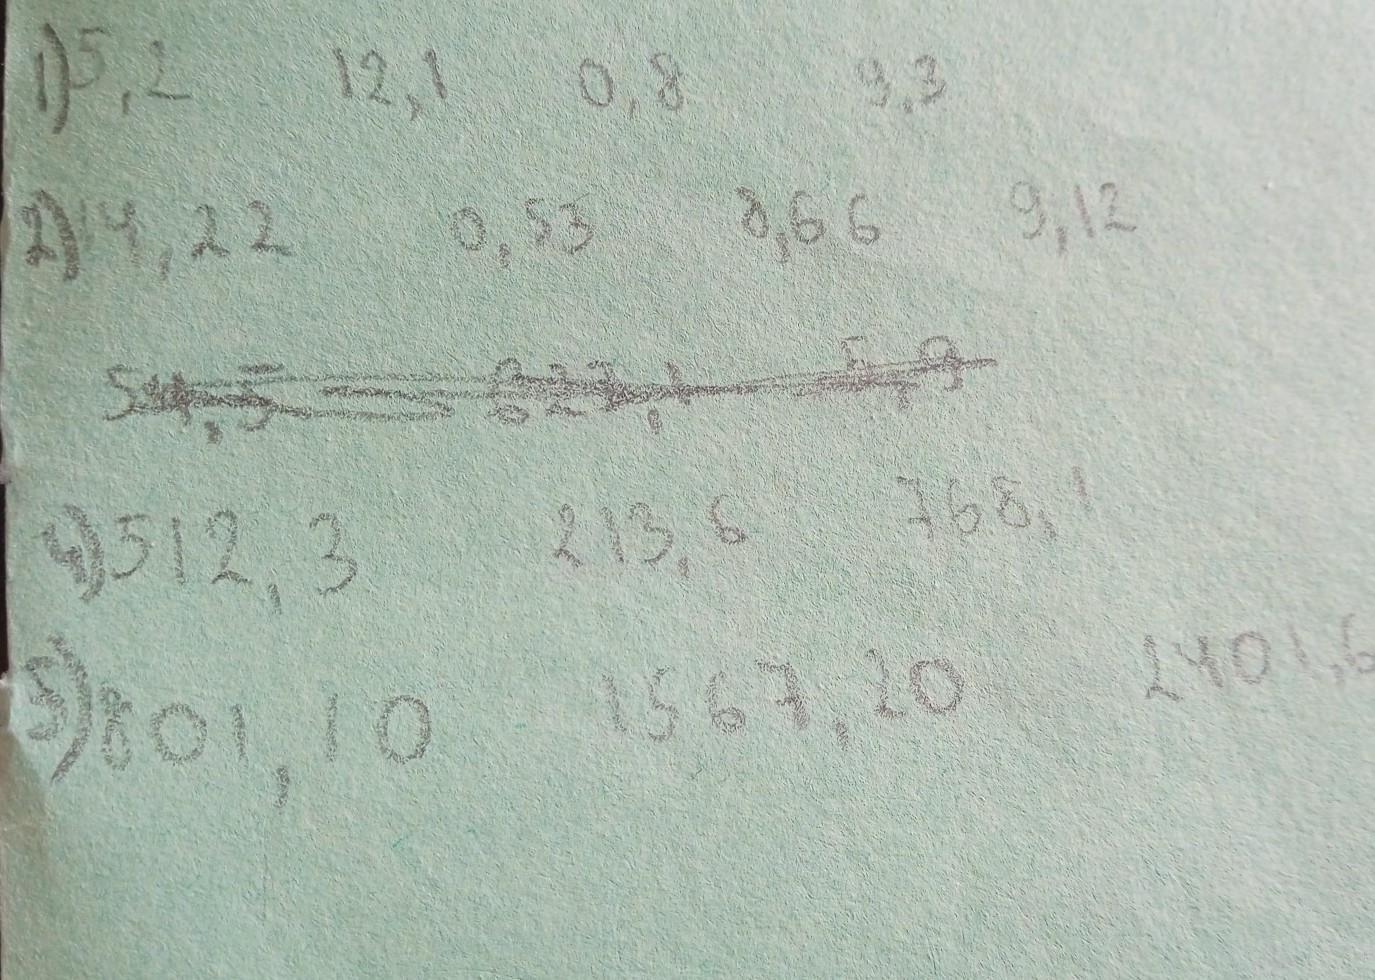 1) 5,2 12,1 0,8 9,3
2) 14,22 0,53 8,66 9,12
4) 512,3 213,6 768,1
5) 801,10 1567,20 2401,6